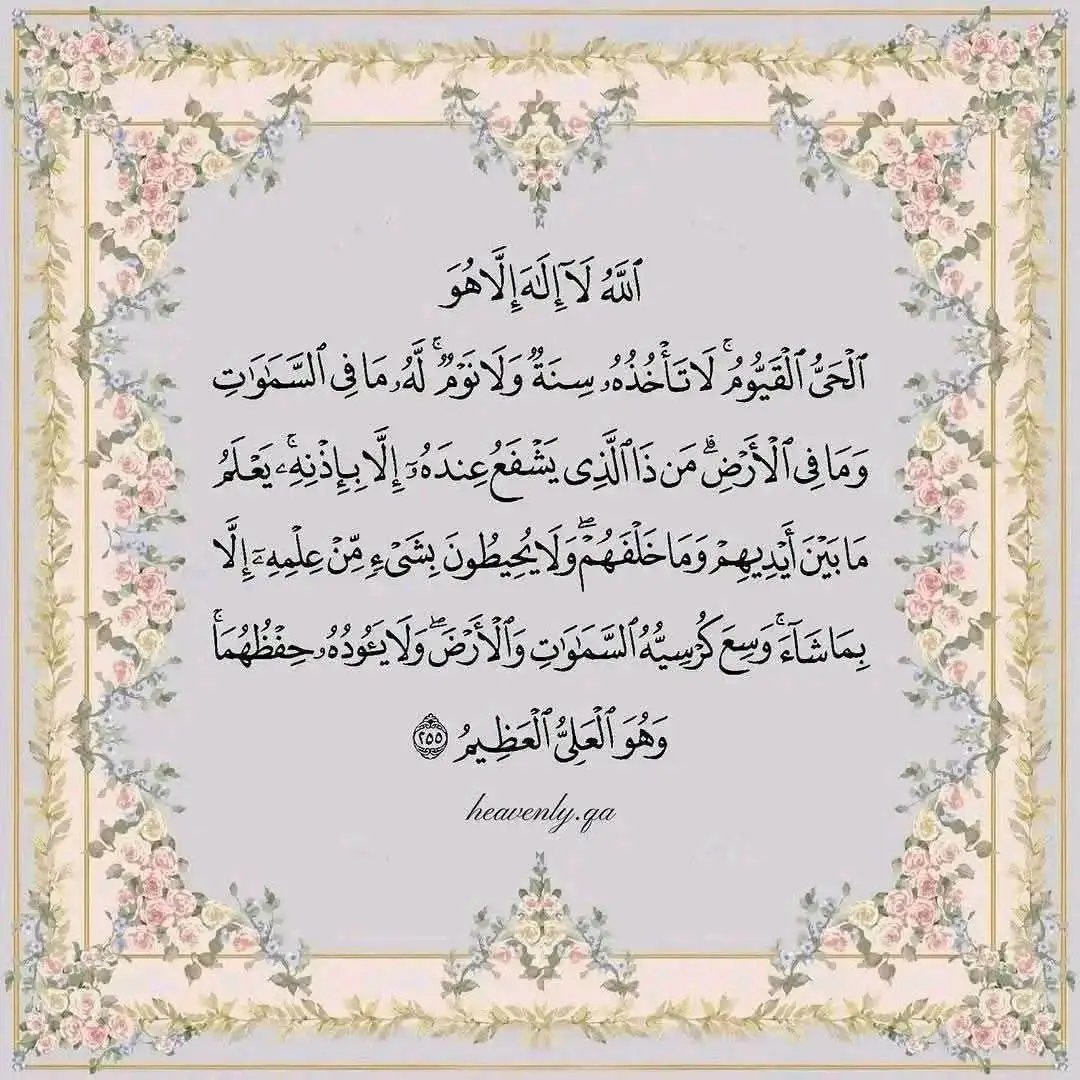 ٱللَّهُ لَآ إِلَـٰهَ إِلَّا هُوَ
ٱلْحَىُّ ٱلْقَيُّومُ ۚ لَا تَأْخُذُهُۥ سِنَةٌ وَلَا نَوْمٌ ۚ لَّهُۥ مَا فِى ٱلسَّمَـٰوَٰتِ
وَمَا فِى ٱلْأَرْضِ ۗ مَن ذَا ٱلَّذِى يَشْفَعُ عِندَهُۥٓ إِلَّا بِإِذْنِهِۦ ۚ يَعْلَمُ
مَا بَيْنَ أَيْدِيهِمْ وَمَا خَلْفَهُمْ ۖ وَلَا يُحِيطُونَ بِشَىْءٍ مِّنْ عِلْمِهِۦٓ إِلَّا
بِمَا شَآءَ ۚ وَسِعَ كُرْسِيُّهُ ٱلسَّمَـٰوَٰتِ وَٱلْأَرْضَ ۖ وَلَا يَـُٔودُهُۥ حِفْظُهُمَا ۚ
وَهُوَ ٱلْعَلِىُّ ٱلْعَظِيمُ ٢٥٥
heavenly.qa